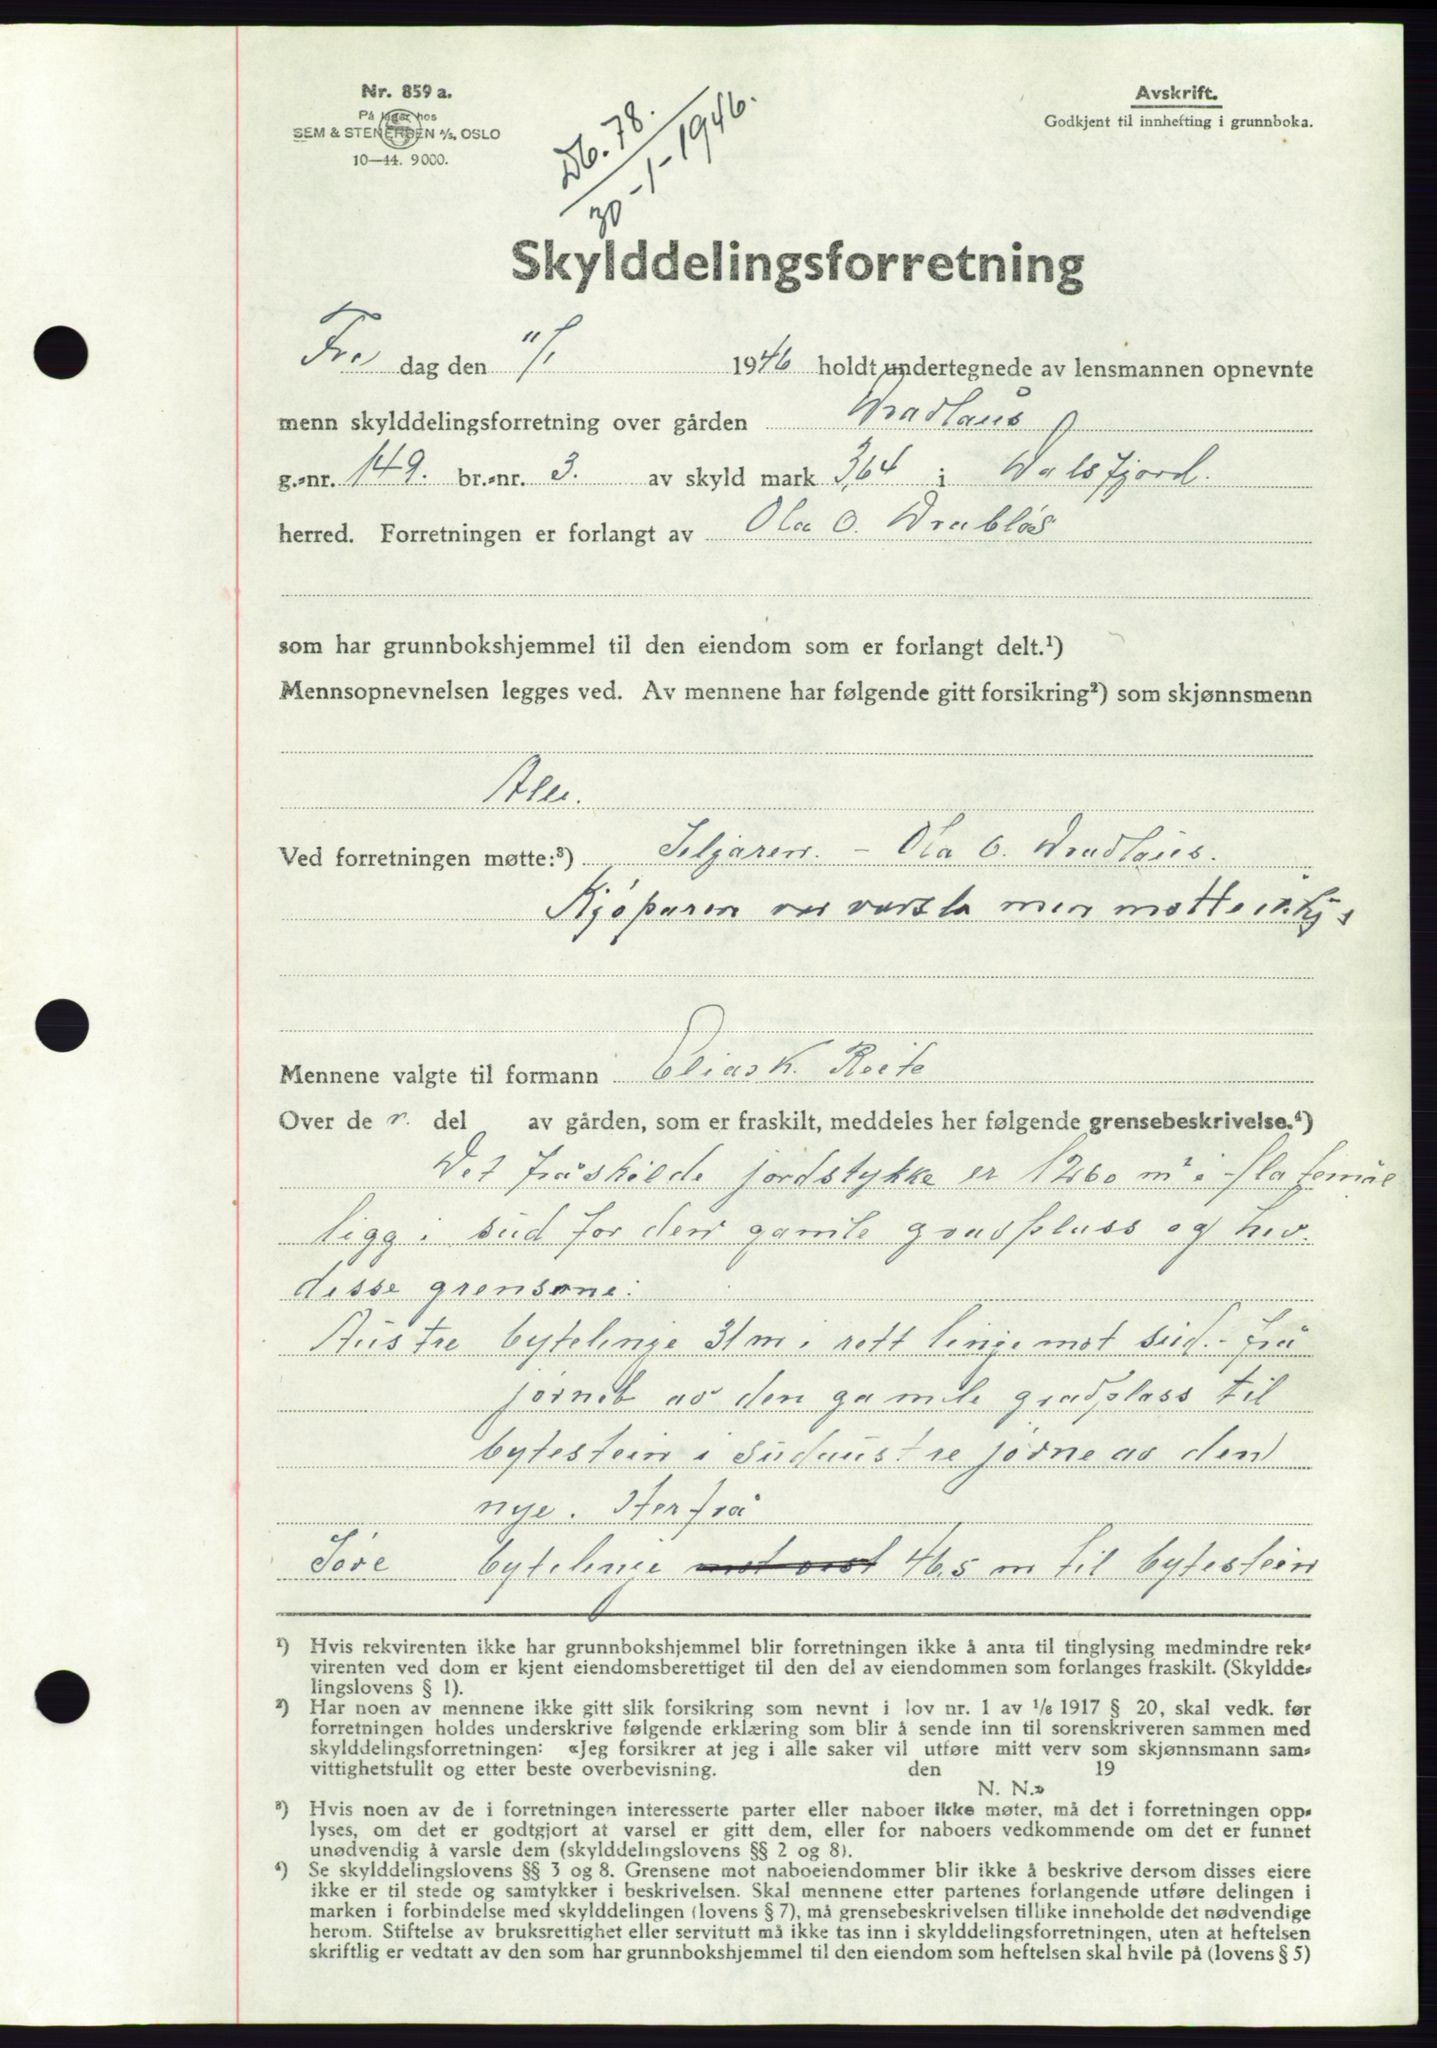 Nr. 859 a.
På lager hos
SEM & STENERSEN A/S, OSLO
10—44. 9000.
Avskrift.
Godkjent til innhefting i grunnboka.
Db. 78.
30-1-1946.
Skylddelingsforretning
Fre dag den 11/1 1946 holdt undertegnede av lensmannen opnevnte
menn skylddelingsforretning over gården
g.-nr. 149. br.-nr. 3. av skyld mark 3,64 i Dalsfjord.
herred. Forretningen er forlangt av Ola O.
som har grunnbokshjemmel til den eiendom som er forlangt delt.¹)
Mennsopnevnelsen legges ved. Av mennene har følgende gitt forsikring²) som skjønnsmenn
Alle.
Ved forretningen møtte:³) Seljaren. – Ola O.
Kjøparen var varsla men møtte ikkje
Mennene valgte til formann Elias K. Reite
Over de n. del av gården, som er fraskilt, meddeles her følgende grensebeskrivelse.⁴)
Det fråskilde jordstykke er 1260 m² i flatemål
ligg i sud for den gamle gravplass og hev
disse grensene:
Austre bytelinje 31 m i rett linje mot sud. – frå
jørnet av den gamle gravplass til
bytestein i sudaustre jørne av den
nye. Herfrå
Søre bytelinje mot vest 46,5 m til bytestein
¹) Hvis rekvirenten ikke har grunnbokshjemmel blir forretningen ikke å anta til tinglysing medmindre rek-
virenten ved dom er kjent eiendomsberettiget til den del av eiendommen som forlanges fraskilt. (Skyldde-
lingslovens § 1).
²) Har noen av mennene ikke gitt slik forsikring som nevnt i lov nr. 1 av 1/6 1917 § 20, skal vedk. før
forretningen holdes underskrive følgende erklæring som blir å sende inn til sorenskriveren sammen med
skylddelingsforretningen: «Jeg forsikrer at jeg i alle saker vil utføre mitt verv som skjønnsmann sam-
vittighetsfullt og etter beste overbevisning. den 19
N. N.»
³) Hvis noen av de i forretningen interesserte parter eller naboer ikke møter, må det i forretningen opp-
lyses, om det er godtgjort at varsel er gitt dem, eller for naboers vedkommende om det er funnet
unødvendig å varsle dem (skylddelingslovens §§ 2 og 8).
⁴) Se skylddelingslovens §§ 3 og 8. Grensene mot naboeiendommer blir ikke å beskrive dersom disses eiere
ikke er til stede og samtykker i beskrivelsen. Skal mennene etter partenes forlangende utføre delingen i
marken i forbindelse med skylddelingen (lovens § 7), må grensebeskrivelsen tillike inneholde det nødvendige
herom. Stiftelse av bruksrettighet eller servitutt må ikke tas inn i skylddelingsforretningen, uten at heftelsen
skriftlig er vedtatt av den som har grunnbokshjemmel til den eiendom som heftelsen skal hvile på (lovens § 5)